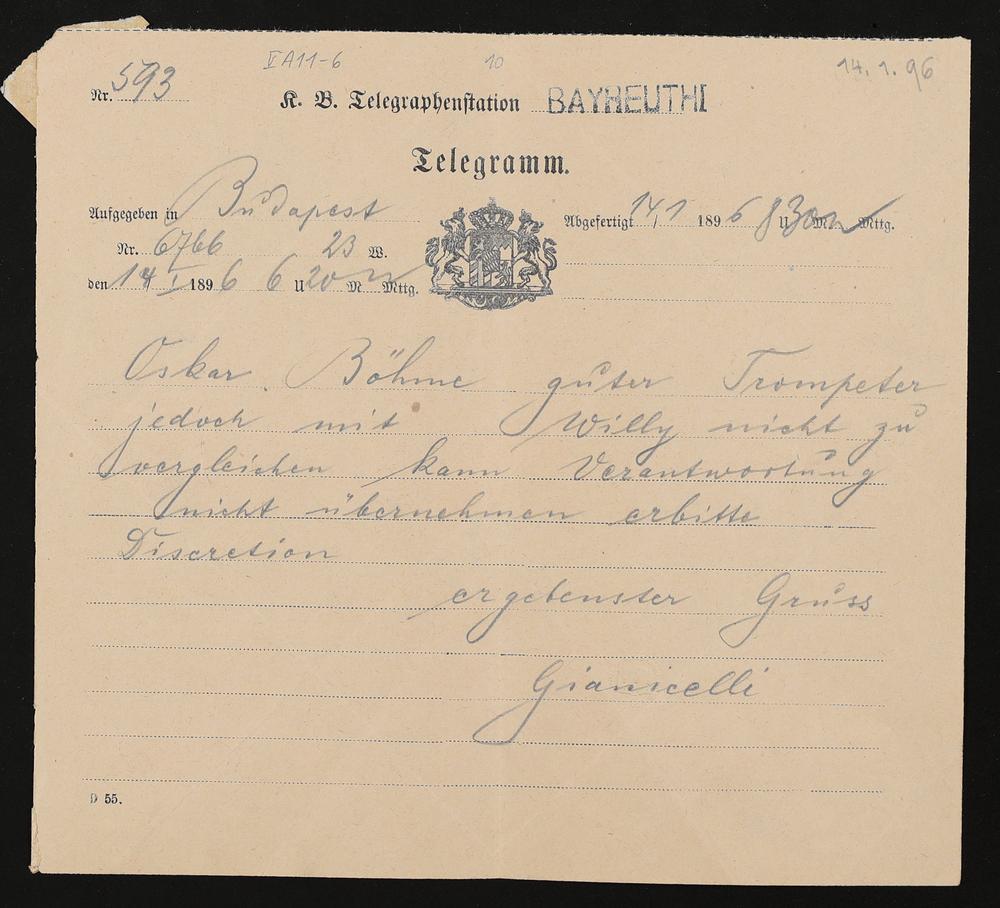 V A11-6
10
14.1.96
Nr. 593
K. B. Telegraphenstation BAYREUTH I
Telegramm.
Aufgegeben in Budapest
Nr. 6766 23 W.
den 14 I 1896 6 U 20 M n Mttg.
Abgefertigt 14,1 1896 8 U 30 M n Mttg.
Oskar Böhme guter Trompeter
jedoch mit Willy nicht zu
vergleichen kann Verantwortung
nicht übernehmen erbitte
Discretion
ergebenster Gruss
Gianicelli
D 55.